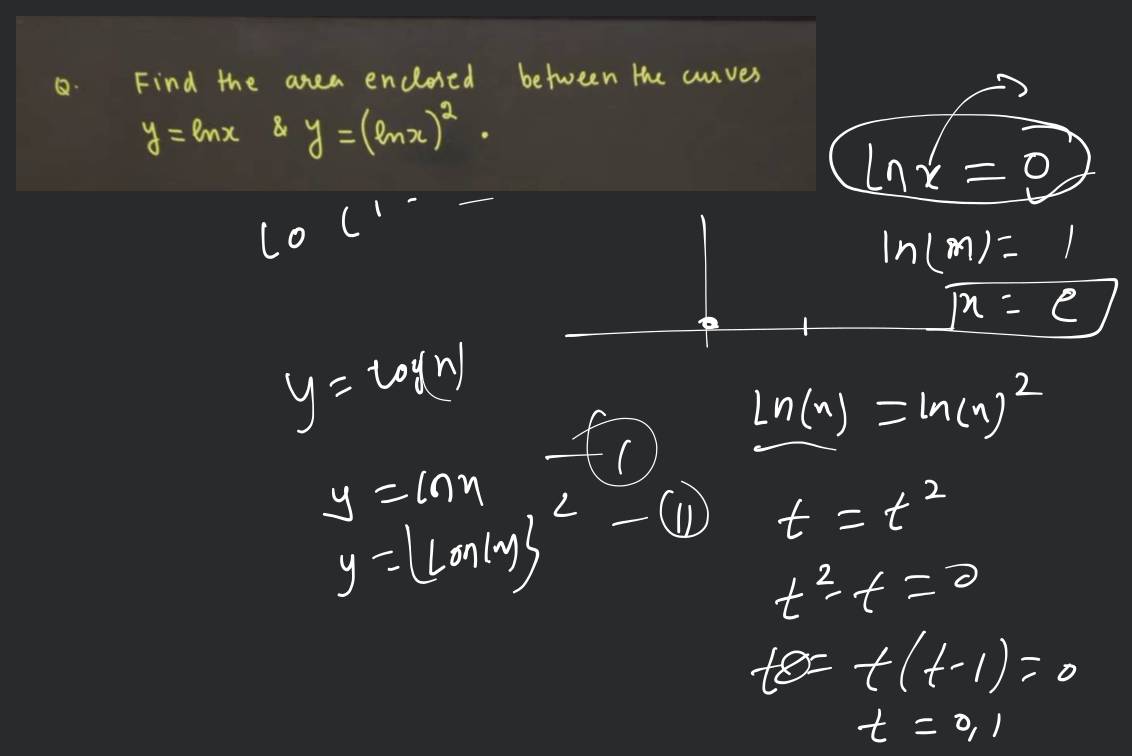 Q. Find the area enclosed between the curves
y = lnx & y = (lnx)² .
lnx = 0
ln(n) = 1
n = e
y = log(n)
Ln(n) = ln(n)²
y = lnn — (1)
y = {Lon(n)}² — (11)
t = t²
t² - t = 0
t(t-1) = 0
t = 0,1